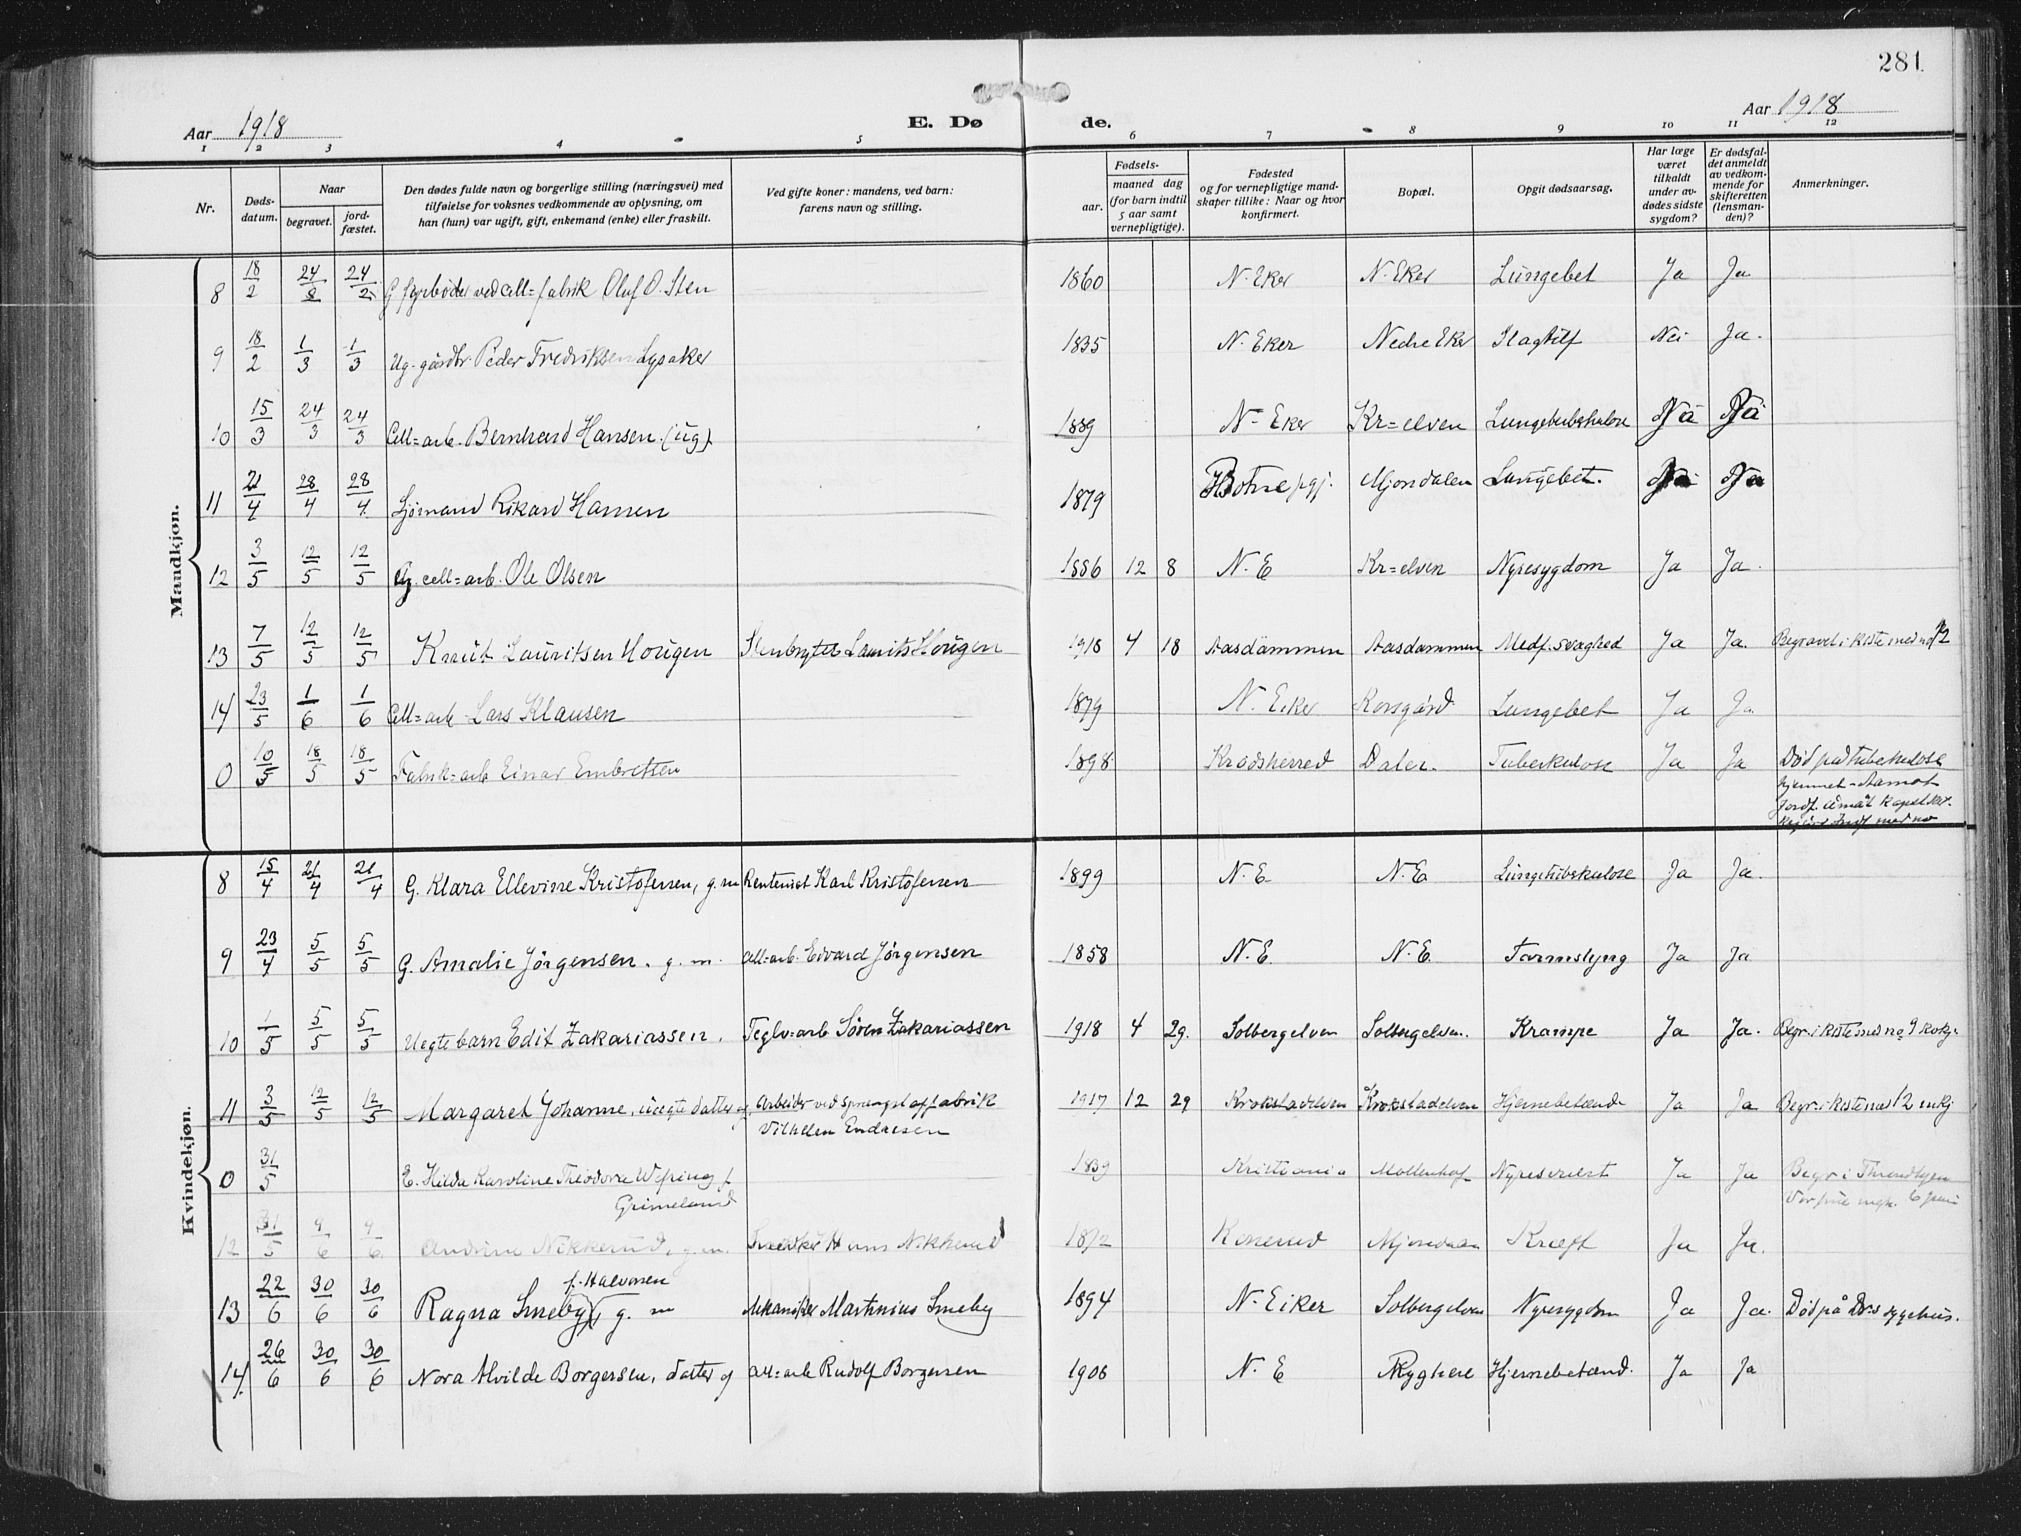 281
Aar 1918
E. Dø
de.
Aar 1918
1 2 3 4 5 6 7 8 9 10 11 12
Nr.
Døds-
datum.
Naar
begravet.
jord-
fæstet.
Den dødes fulde navn og borgerlige stilling (næringsvei) med
tilføielse for voksnes vedkommende av oplysning, om
han (hun) var ugift, gift, enkemand (enke) eller fraskilt.
Ved gifte koner: mandens, ved barn:
farens navn og stilling.
Fødsels-
aar.
maaned dag
(for barn indtil
5 aar samt
vernepligtige).
Fødested
og for vernepligtige mand-
skaper tillike: Naar og hvor
konfirmert.
Bopæl.
Opgit dødsaarsag.
Har læge
været
tilkaldt
under av-
dødes sidste
sygdom?
Er dødsfal-
det anmeldt
av vedkom-
mende for
skifteretten
(lensman-
den)?
Anmerkninger.
Mandkjøn.
8 18/2 24/2 24/2 G fyrbøder ved cell=fabrik Oluf O. Sten 1860 N. Eker N. Eker Lungebet Ja Ja
9 18/2 1/3 1/3 Ug. gårdbr. Peder Fredriksen Lysaker 1835 N. Eker Nedre Eker Slagtilf Nei Ja.
10 15/3 24/3 24/3 Cell=arb. Bernhard Hansen (ug). 1889 N= Eker Kr=elven Lungetuberkulose
11 21/4 28/4 28/4 Sjømand Rikard Hansen 1879 Botne pgj. Mjøndalen Lungebet.
12 3/5 12/5 12/5 Ug. cell=arb. Ole Olsen 1886 12 8 N. E Kr=elven Nyresygdom Ja Ja.
13 7/5 12/5 12/5 Knut Lauritsen Hougen Stenbryter Laurits Hougen 1918 4 18 Aasdammen Aasdammen Medf. svaghed Ja Ja. Begravet i kiste med no 12
14 23/5 1/6 1/6 Cell=arb. Lars Klausen 1879 N. Eiker Korsgård Lungebet Ja Ja
0 10/5 18/5 18/5 Fabrik=arb Einar Embretsen 1898 Krødsherred Daler. Tuberkulose Ja Ja Død på tuberkulose
hjemmet - Aamot
Kvindekjøn.
8 15/4 21/4 21/4 G. Klara Ellevine Kristofersen, g. m Rentenist Karl Kristofersen 1899 N. E. N. E Lungetuberkulose Ja Ja.
9 23/4 5/5 5/5 G. Amalie Jørgensen. g. m. cell=arb. Edvard Jørgensen 1858 N. E. N. E. Tarmslyng Ja Ja
10 1/5 5/5 5/5 Uegte barn Edit Zakariassen. Teglv=arb Søren Zakariassen 1918 4 29. Solbergelven Solbergelven. Krampe Ja Ja. Begr. i kiste med no 9
11 3/5 12/5 12/5 Margaret Johanne, uegte datter af Arbeider ved sprengstoffabrik
Vilhelm Endresen 1917 12 29 Krokstadelven Krokstadelven Hjernebetænde Ja Ja Begr. i kiste med 12
0 31/5 E. Hilda Karoline Theodora f.
Grimelund 1839 Kristiania Møllenhof Ja Ja Begr i
12 31/5 9/6 9/6 Andrine Nikkerud, g. m. Hans Nikkerud 1872 Konerud Mjøndalen Kræft Ja Ja.
13 22/6 30/6 30/6 Ragna Smeby, f. Halvorsen g. m Mekaniker Martinius Smeby 1894 N. Eiker Solbergelven Nyresygdom Ja Ja. Død på Dr=s sygehus.
14. 26/6 30/6 30/6 Nora Alvilde Borgersen, datter af cell=arb Rudolf Borgersen 1906 N. E Ryghere Hjernebetænd. Ja Ja